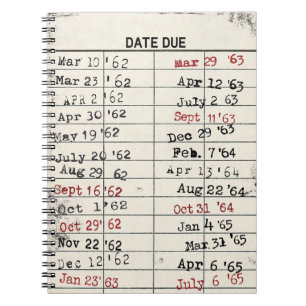 DATE DUE
Mar 10 '62 Mar 29 '63
Mar 23 '62 Apr 12 '63
APR 2 '62 July 2 '63
Apr 30 '62 Sept 11 '63
May 19 '62 Dec 29 '63
July 20 '62 Feb. 7 '64
Aug 29 '62 Apr 13 '64
Sept 16 '62 Aug 22 '64
Oct 1 '62 Oct 31 '64
Oct 29 '62 Jan 4 '65
Nov 22 '62 Mar 31 '65
Dec 12 '62 Apr 6 '65
Jan 23 '63 July 6 '65